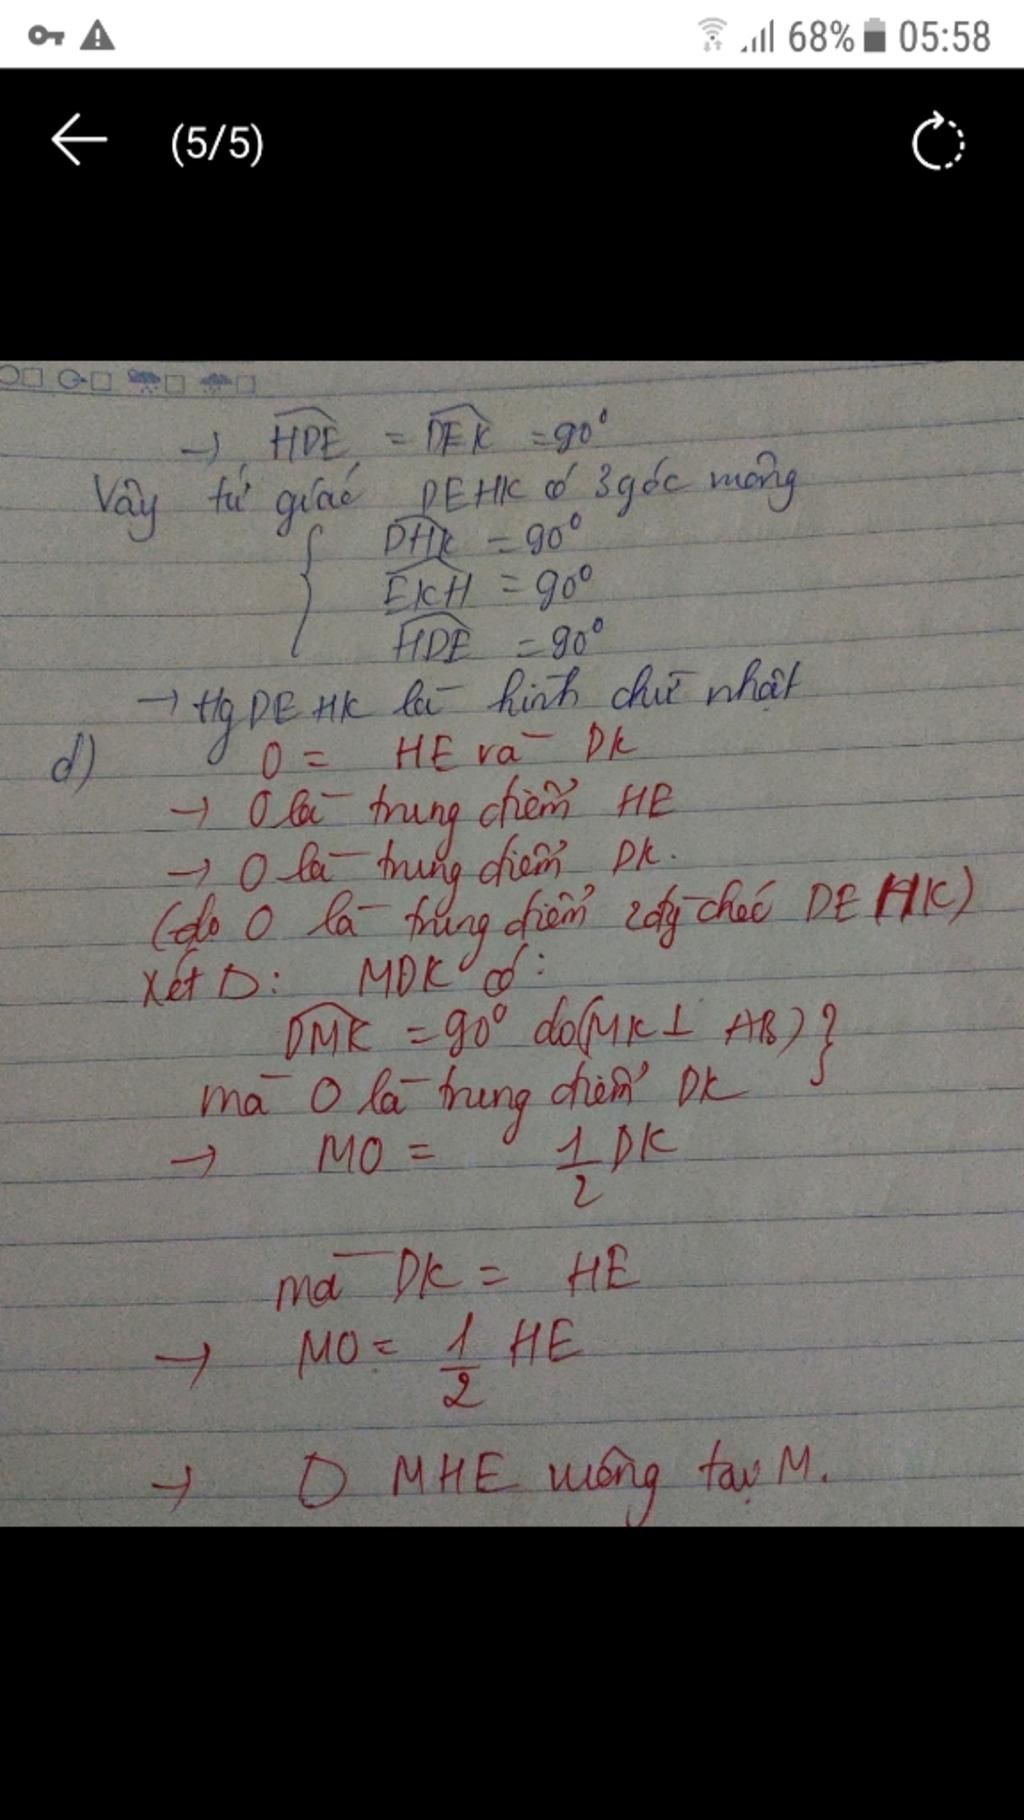 68% 05:58
(5/5)
→ HDE = DEK = 90°
Vậy tứ giác DEHK có 3 góc vuông
DHK = 90°
EKH = 90°
HDE = 90°
→ Hg DEHK là hình chữ nhật
d) O = HE và DK
→ O là trung điểm HE
→ O là trung điểm DK.
(do O là trung điểm 2 đg chéo DEHK)
Xét Δ: MDK có:
DMK = 90° do (MK ⊥ AB) }
mà O là trung điểm DK
→ MO = 1/2 DK
mà DK = HE
→ MO = 1/2 HE
→ Δ MHE vuông tại M.